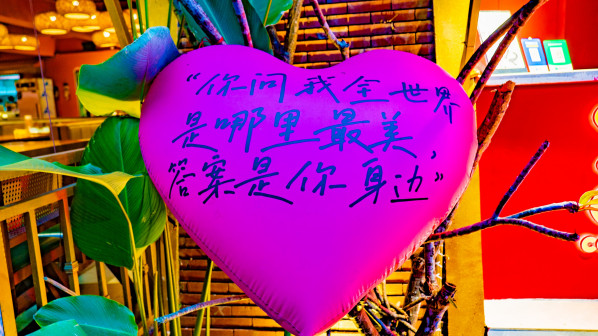 “你问我全世界
是哪里最美,
答案是你身边”